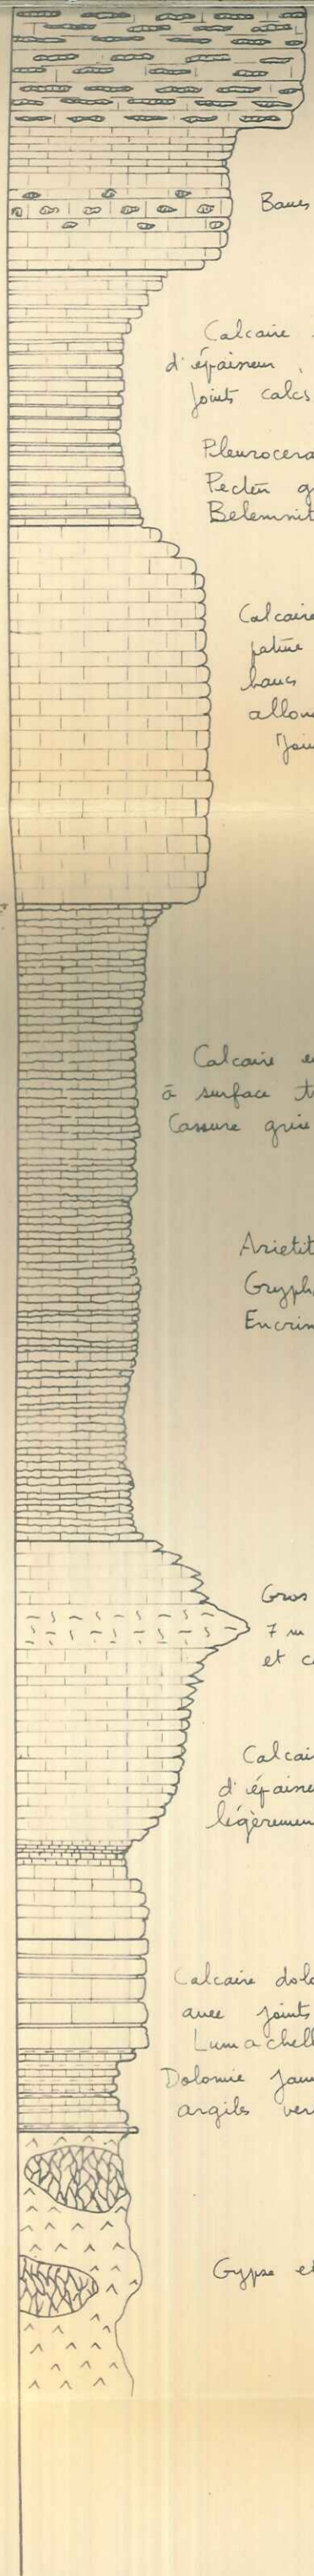 Bancs
Calcaire
d'épaisseur
Joints calcs
Pleurocera
Pecten g
Belemnit
Calcaire
patine
bancs
allon
Join
Calcaire e
à surface t
Cassure grise
Arietit
Gryph
Encrin
Gros
7 m
et c
Calcai
d'épaisse
légèremen
Calcaire dolo
avec joints
Lumachell
Dolomie jaun
argiles ver
Gypse et